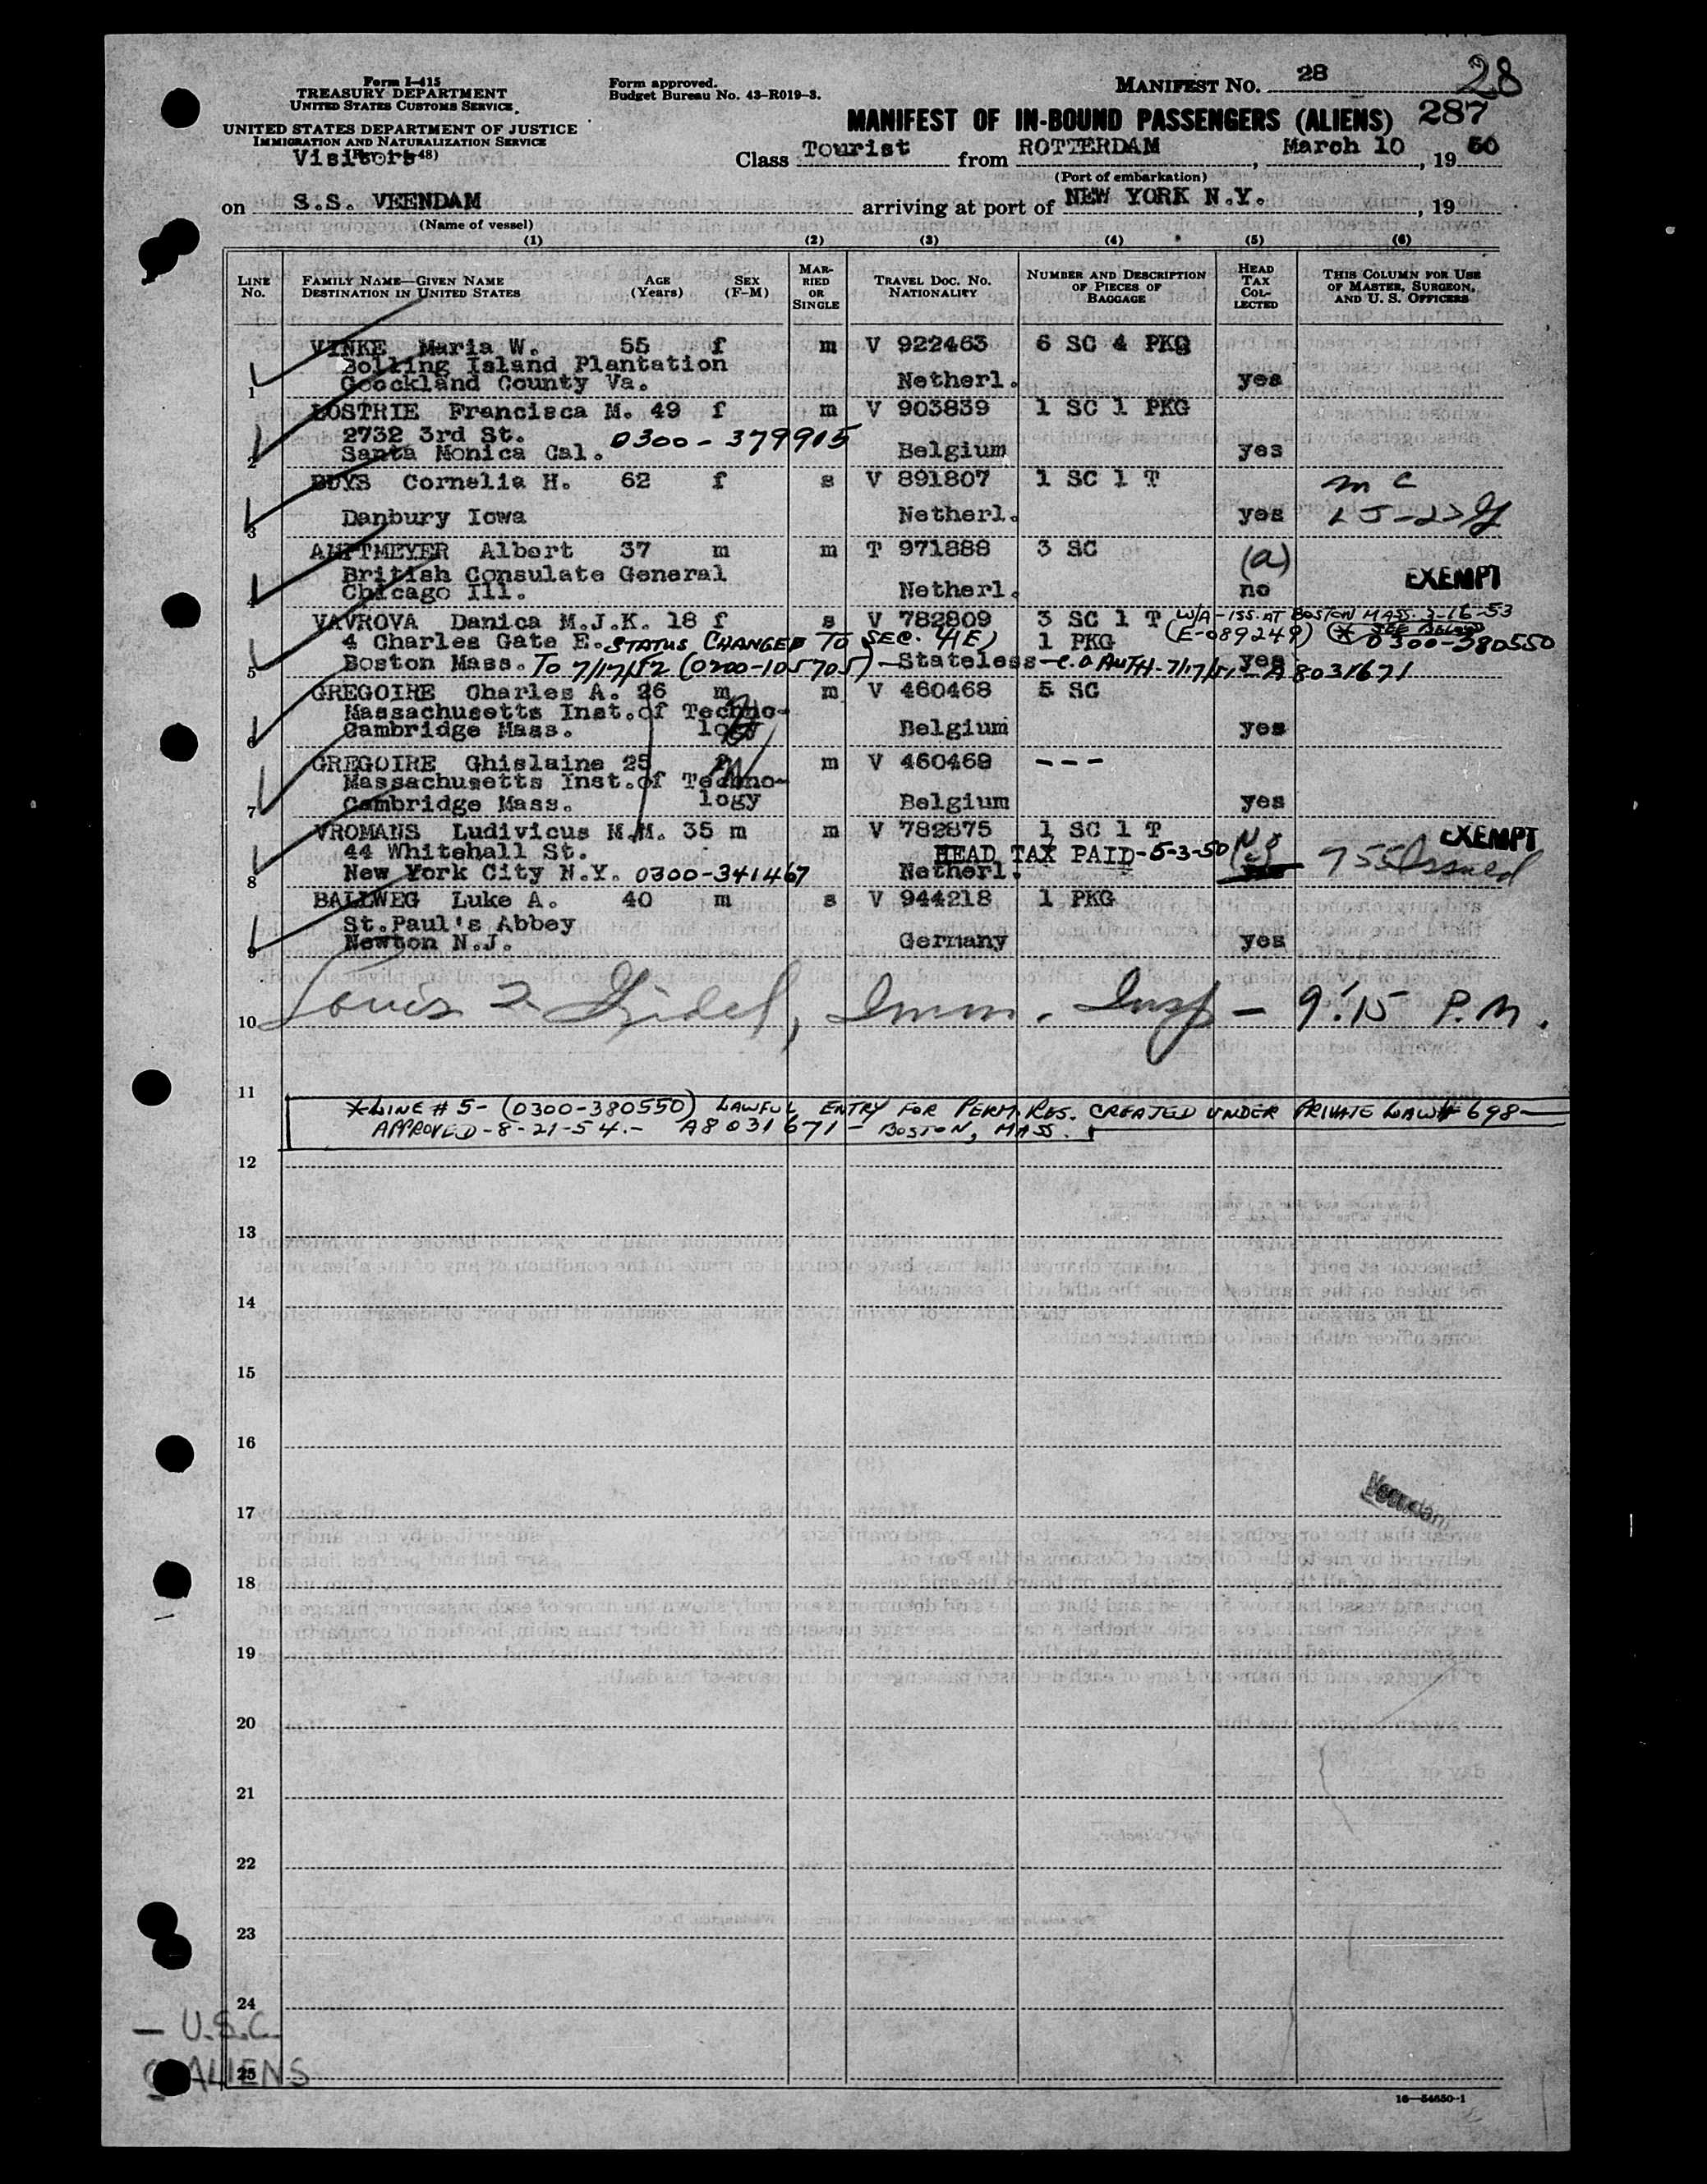 Form I-415
TREASURY DEPARTMENT
UNITED STATES CUSTOMS SERVICE
UNITED STATES DEPARTMENT OF JUSTICE
IMMIGRATION AND NATURALIZATION SERVICE
Visitors
Form approved.
Budget Bureau No. 43-R019-3.
MANIFEST NO. 28
28
MANIFEST OF IN-BOUND PASSENGERS (ALIENS) 287
Class Tourist from ROTTERDAM, March 10, 19 50
(Port of embarkation)
on S.S. VEENDAM arriving at port of NEW YORK N.Y., 19
(Name of vessel)
(1) (2) (3) (4) (5) (6)
LINE No. FAMILY NAME—GIVEN NAME DESTINATION IN UNITED STATES AGE (Years) SEX (F-M) MARRIED OR SINGLE TRAVEL DOC. NO. NATIONALITY NUMBER AND DESCRIPTION OF PIECES OF BAGGAGE HEAD TAX COLLECTED THIS COLUMN FOR USE OF MASTER, SURGEON, AND U. S. OFFICERS
VINKE Maria W. 55 f m V 922463 6 SC 4 PKG
Bolling Island Plantation
1 Goockland County Va. Netherl. yes
LOSTRIE Francisca M. 49 f m V 903839 1 SC 1 PKG
2732 3rd St. 0300-379915
2 Santa Monica Cal. Belgium yes
BUYS Cornelia H. 62 f s V 891807 1 SC 1 T m c
3 Danbury Iowa Netherl. yes
Albert 37 m m T 971888 3 SC (a)
British Consulate General EXEMPT
4 Chicago Ill. Netherl. no
VAVROVA Danica M.J.K. 18 f s V 782809 3 SC 1 T W/A-ISS. AT BOSTON MASS. 3-16-53
4 Charles Gate E. STATUS CHANGED TO SEC. 4(E) 1 PKG (E-089249) (* SEE BELOW) 0300-380550
5 Boston Mass. TO 7/17/52 (0200-105705) - Stateless - C.O. AUTH-7/17/51 - yes A8031671
GREGOIRE Charles A. 26 m m V 460468 5 SC
Massachusetts Inst.of Techno-
6 Cambridge Mass. logy Belgium yes
GREGOIRE Ghislaine 25 m V 460469 ---
Massachusetts Inst.of Techno-
7 Cambridge Mass. logy Belgium yes
VROMANS Ludivicus M.M. 35 m m V 782875 1 SC 1 T EXEMPT
44 Whitehall St. HEAD TAX PAID-5-3-50
8 New York City N.Y. 0300-341467 Netherl. 755 Issued
BALLWEG Luke A. 40 m s V 944218 1 PKG
St.Paul's Abbey
9 Newton N.J. Germany yes
10 Imm. Insp - 9:15 P.M.
11
*LINE # 5- (0300-380550) LAWFUL ENTRY FOR PERM. RES. CREATED UNDER PRIVATE LAW # 698-
APPROVED-8-21-54.- A8031671- BOSTON, MASS.
12
13
14
15
16
Veendam
17
18
19
20
21
22
23
24
— U.S.C.
25
ALIENS
16—54650-1